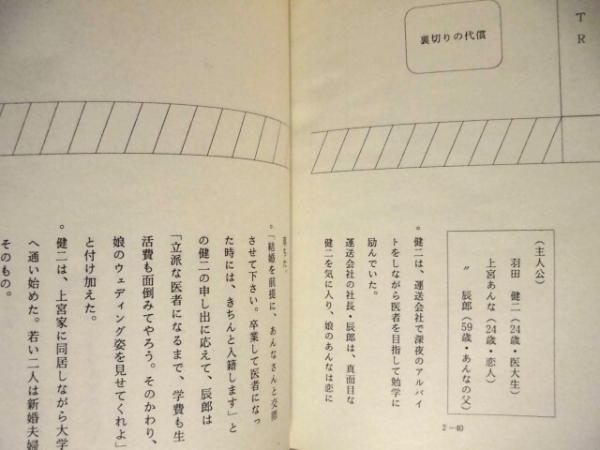 T
R
裏切りの代償
(主人公)
羽田 健二(24歳・医大生)
上宮あんな(24歳・恋人)
〃 辰郎(59歳・あんなの父)
。健二は、運送会社で深夜のアルバイ
トをしながら医者を目指して勉学に
励んでいた。
運送会社の社長・辰郎は、真面目な
健二を気に入り、娘のあんなは恋に
2-40
落ちた。
。「結婚を前提に、あんなさんと交際
させて下さい。卒業して医者になっ
た時には、きちんと入籍します」と
の健二の申し出に応えて、辰郎は
「立派な医者になるまで、学費も生
活費も面倒みてやろう。そのかわり、
娘のウェディング姿を見せてくれよ」
と付け加えた。
。健二は、上宮家に同居しながら大学
へ通い始めた。若い二人は新婚夫婦
そのもの。